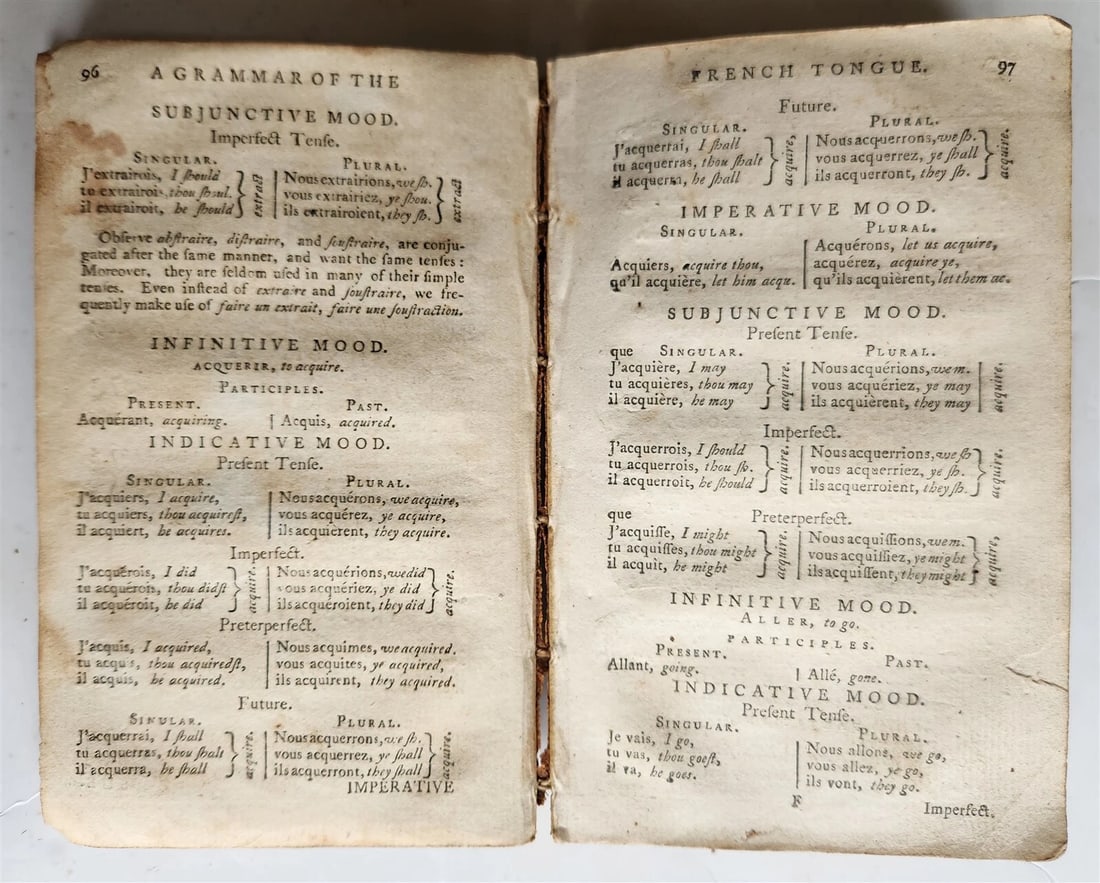 96 A GRAMMAR OF THE
SUBJUNCTIVE MOOD.
Imperfect Tense.
SINGULAR. PLURAL.
J'extrairois, I ſhould Nous extrairions, we ſh.
tu extrairois, thou ſhoul. vous extrairiez, ye ſhou.
il extrairoit, he ſhould } extract ils extrairoient, they ſh. } extract
Obſerve abſtraire, diſtraire, and ſouſtraire, are conju-
gated after the ſame manner, and want the ſame tenſes:
Moreover, they are ſeldom uſed in many of their ſimple
tenſes. Even inſtead of extraire and ſouſtraire, we fre-
quently make uſe of faire un extrait, faire une ſouſtraction.
INFINITIVE MOOD.
ACQUERIR, to acquire.
PARTICIPLES.
PRESENT. PAST.
Acquérant, acquiring. Acquis, acquired.
INDICATIVE MOOD.
Preſent Tenſe.
SINGULAR. PLURAL.
J'acquiers, I acquire, Nous acquérons, we acquire,
tu acquiers, thou acquireſt, vous acquérez, ye acquire,
il acquiert, he acquires. ils acquièrent, they acquire.
Imperfect.
J'acquérois, I did Nous acquérions, we did
tu acquérois, thou didſt vous acquériez, ye did
il acquéroit, he did } acquire. ils acquéroient, they did } acquire.
Preterperfect.
J'acquis, I acquired, Nous acquimes, we acquired.
tu acquis, thou acquiredſt, vous acquites, ye acquired,
il acquis, he acquired. ils acquirent, they acquired.
Future.
SINULAR. PLURAL.
J'acquerrai, I ſhall Nous acquerrons, we ſh.
tu acquerras, thou ſhalt vous acquerrez, ye ſhall
il acquerra, he ſhall } acquire. ils acquerront, they ſhall } acquire.
IMPERATIVE
FRENCH TONGUE. 97
Future.
SINGULAR. PLURAL.
J'acquerrai, I ſhall Nous acquerrons, we ſh.
tu acquerras, thou ſhalt vous acquerrez, ye ſhall
il acquerra, he ſhall } acquire, ils acquerront, they ſh. } acquire.
IMPERATIVE MOOD.
SINGULAR. PLURAL.
Acquérons, let us acquire,
Acquiers, acquire thou, acquérez, acquire ye,
qu'il acquière, let him acqu. qu'ils acquièrent, let them ac.
SUBJUNCTIVE MOOD.
Preſent Tenſe.
que SINGULAR. PLURAL.
J'acquière, I may Nous acquérions, we m.
tu acquières, thou may vous acquériez, ye may
il acquière, he may } acquire. ils acquièrent, they may } acquire.
Imperfect.
J'acquerrois, I ſhould Nous acquerrions, we ſh
tu acquerrois, thou ſh. vous acquerriez, ye ſh.
il acquerroit, he ſhould } acquire. ils acquerroient, they ſh. } acquire.
que Preterperfect.
J'acquiſſe, I might Nous acquiſſions, we m.
tu acquiſſes, thou might vous acquiſſiez, ye might
il acquit, he might } acquire. ils acquiſſent, they might } acquire,
INFINITIVE MOOD.
ALLER, to go.
PARTICIPLES.
PRESENT. PAST.
Allant, going. Allé, gone.
INDICATIVE MOOD.
Preſent Tenſe.
SINGULAR. PLURAL.
Je vais, I go, Nous allons, we go,
tu vas, thou goeſt, vous allez, ye go,
il va, he goes. ils vont, they go.
F Imperfect.